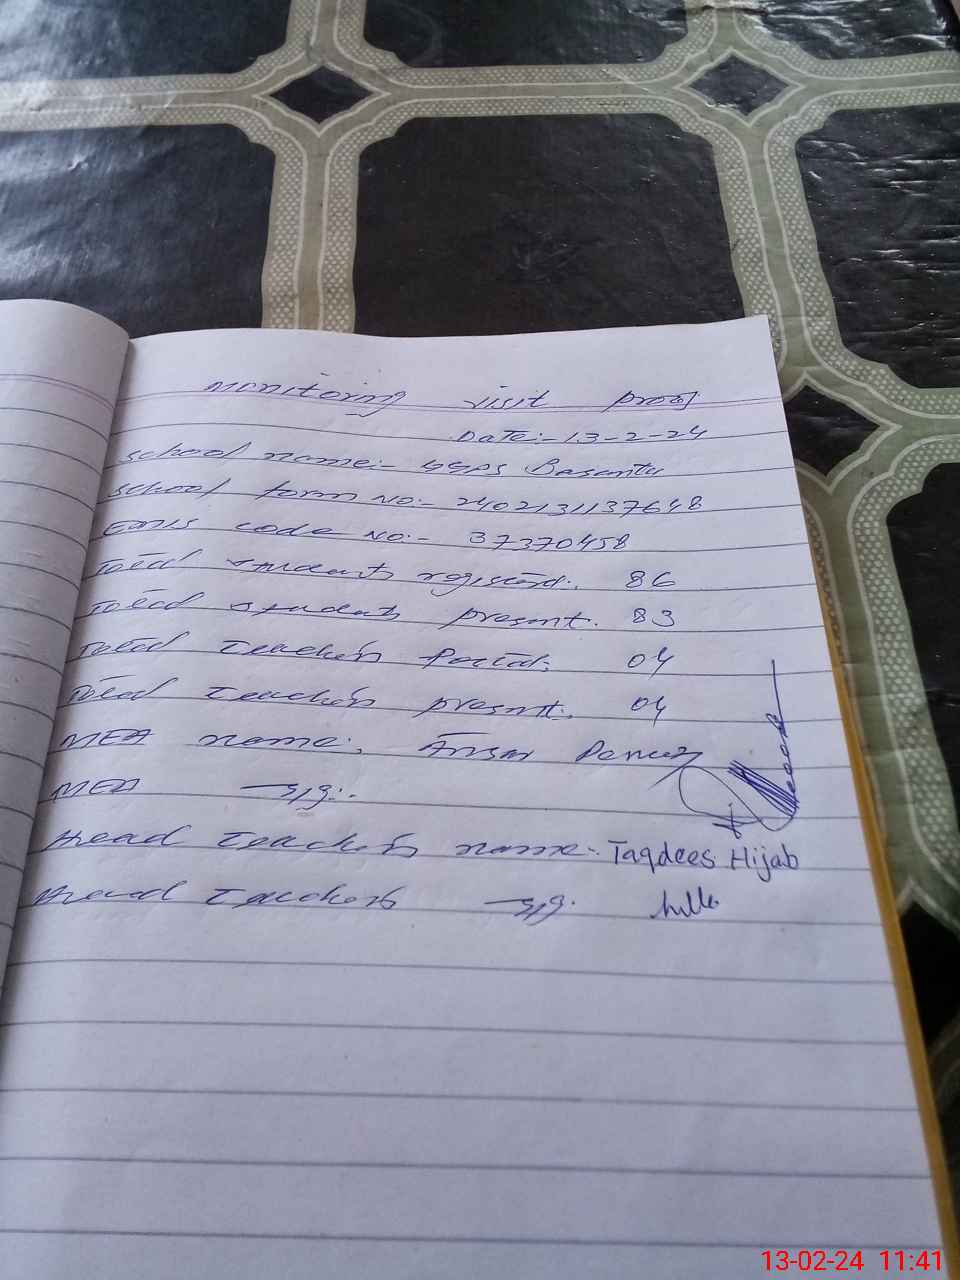 Monitoring visit proof
Date:- 13-2-24
School name:- GGPS Basanta
School form No:- 2402131137648
EMIS code No:- 37370458
Total students registerd:. 86
Total students present. 83
Total teachers Postd:. 04
Total teachers present:. 04
MEA name:. Ansar
MEA sig:.
Head teachers name:- Taqdees Hijab
Head teachers sig.
13-02-24 11:41